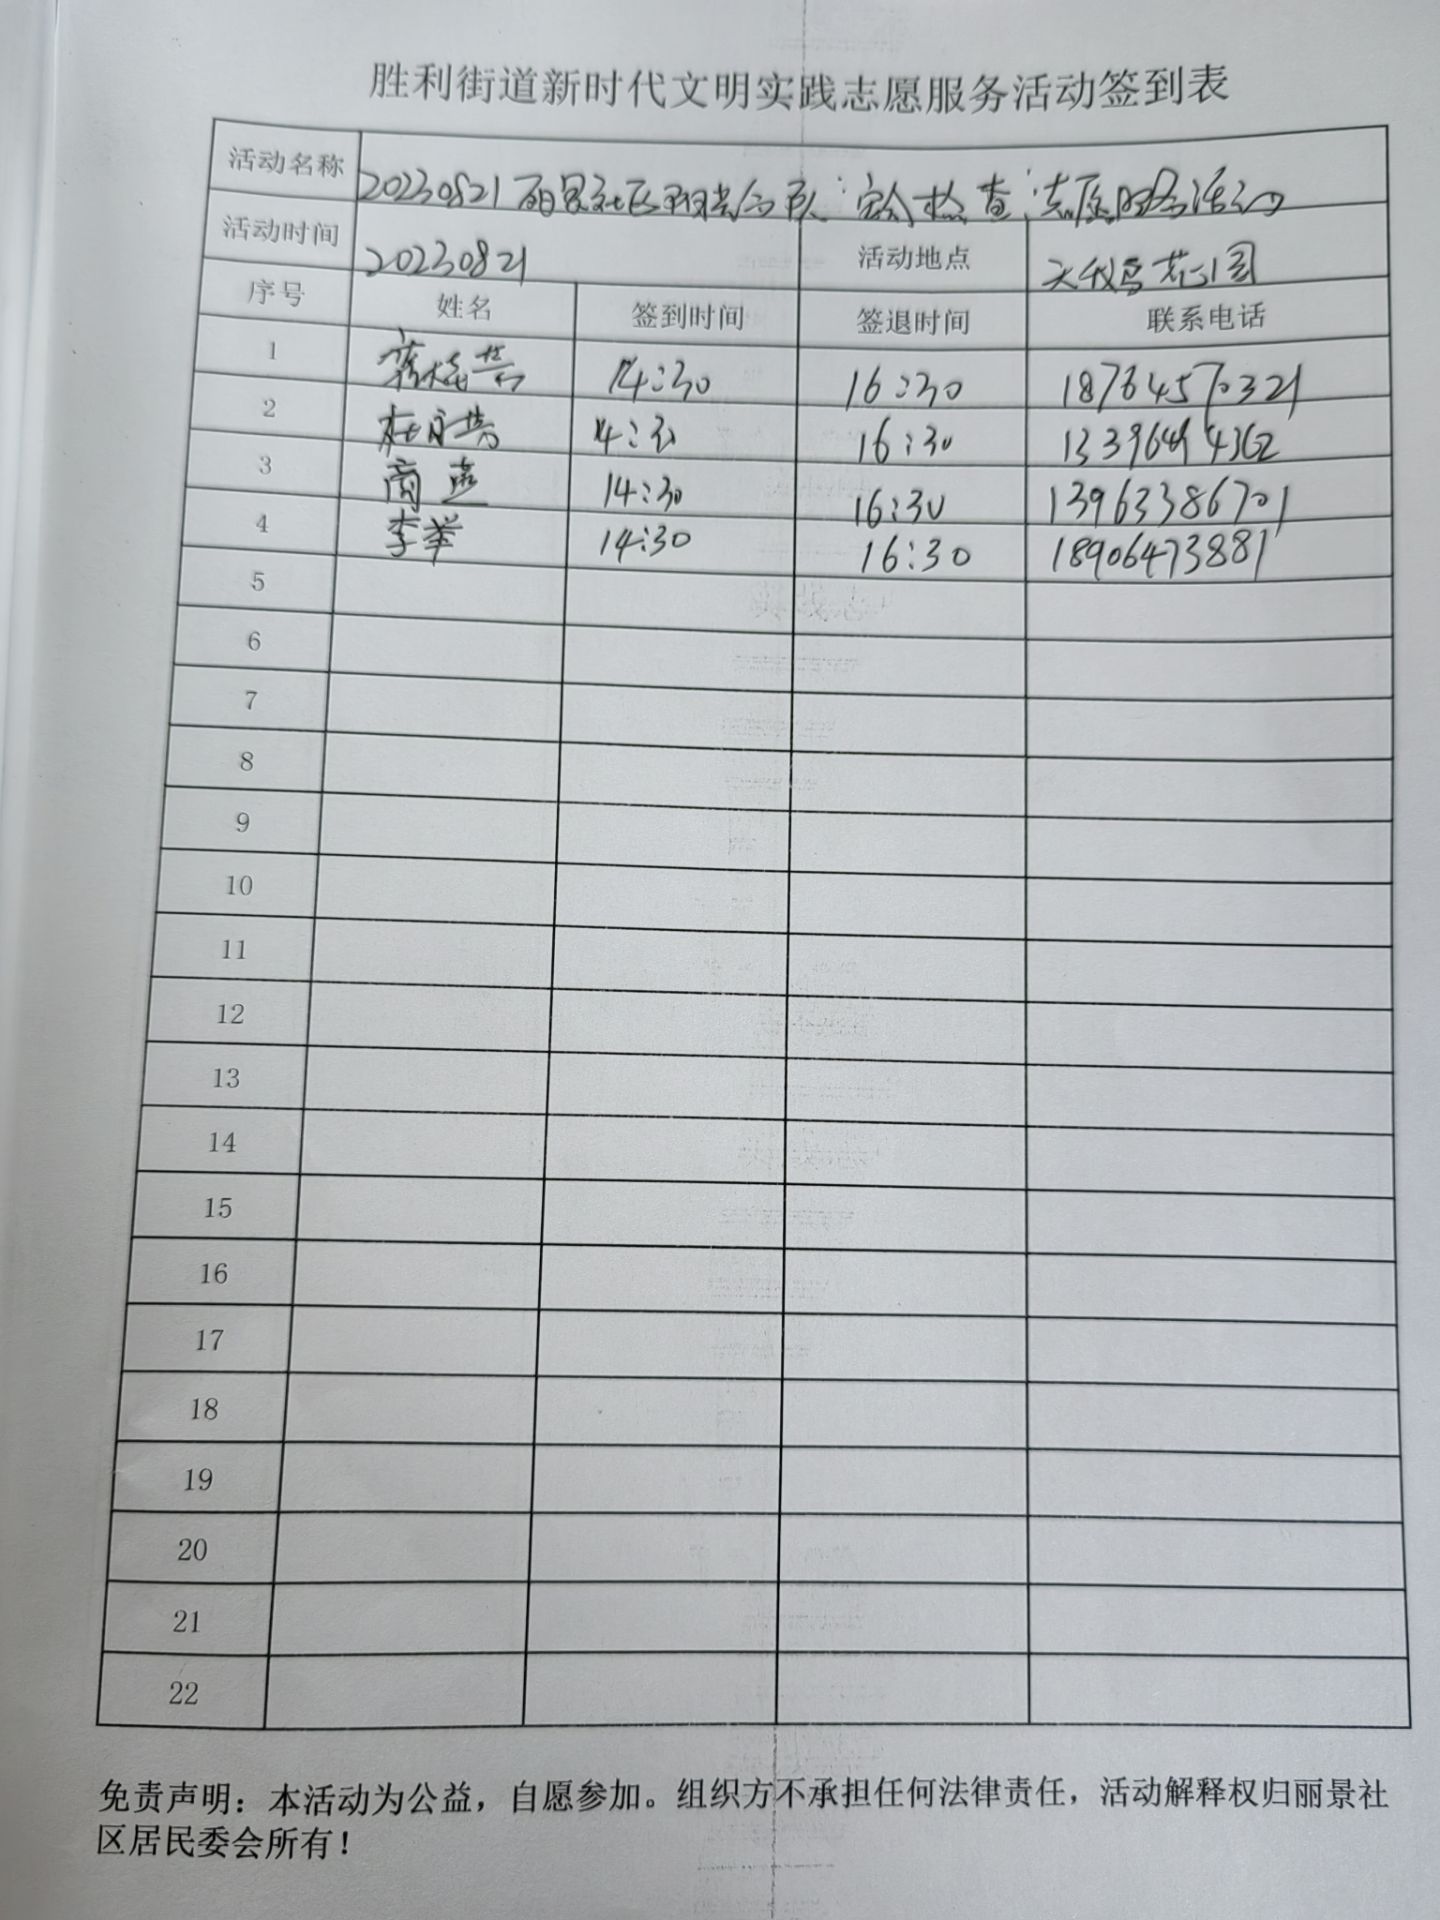 胜利街道新时代文明实践志愿服务活动签到表
活动名称 20230821丽景社区 安全检查 志愿服务活动
活动时间 20230821 活动地点 天鹅花园
序号 姓名 签到时间 签退时间 联系电话
1 14:30 16:30 18764570321
2 14:30 16:30
3 商燕 14:30 16:30 13963386701
4 李举 14:30 16:30 18906473881
5
6
7
8
9
10
11
12
13
14
15
16
17
18
19
20
21
22
免责声明：本活动为公益，自愿参加。组织方不承担任何法律责任，活动解释权归丽景社
区居民委会所有！